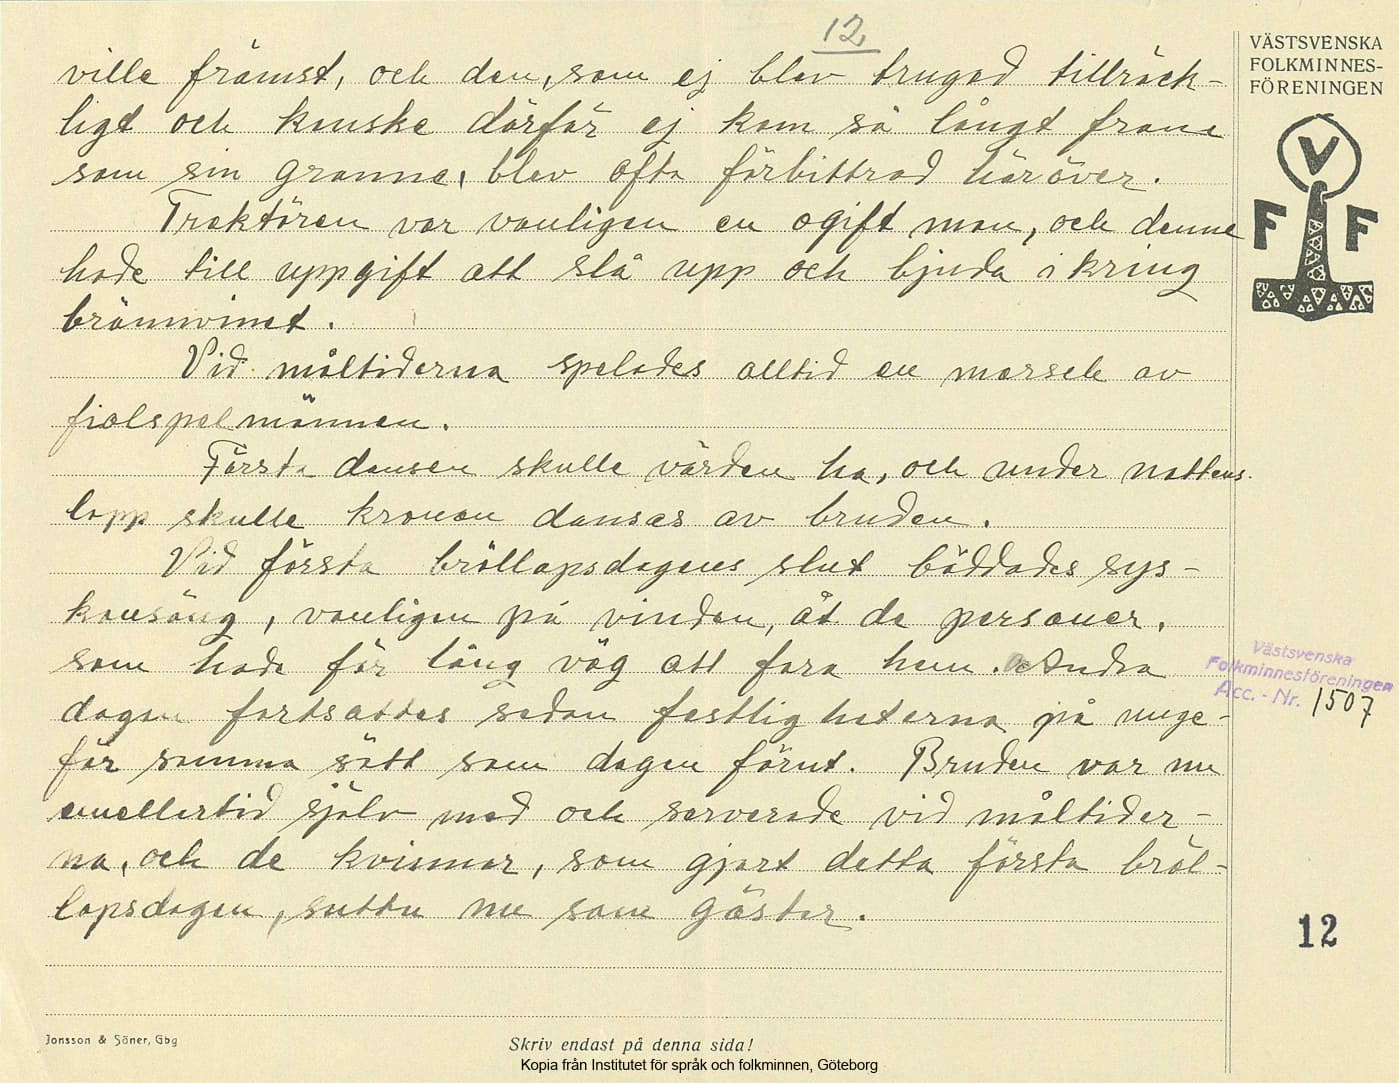 12,
ville främst, och den, som ej blev trugad tillräck-
ligt och kanske därför ej kom så långt fram
som sin granne, blev ofta förbittrad häröver.
Traktören var vanligen en ogift man, och denne
hade till uppgift att slå upp och bjuda ikring
brännvinet.
Vid måltiderna spelades alltid en marsch av
fiolspelmännen.
Första dansen skulle värden ha, och under nattens
lopp skulle kronan dansas av bruden.
Vid första bröllopsdagens slut bäddades sys-
konsäng, vanligen på vinden, åt de personer,
som hade för lång väg att fara hem. Andra
dagen fortsattes sedan festligheterna på unge-
fär samma sätt som dagen förut. Bruden var nu
emellertid själv med och serverade vid måltider-
na, och de kvinnor, som gjort detta första bröl-
lopsdagen, sutto nu som gäster.
VÄSTSVENSKA
FOLKMINNES-
FÖRENINGEN
V
F F
Västsvenska
Folkminnesföreningen
Acc.-Nr. 1507
12
Jonsson & Söner, Gbg
Skriv endast på denna sida!
Kopia från Institutet för språk och folkminnen, Göteborg